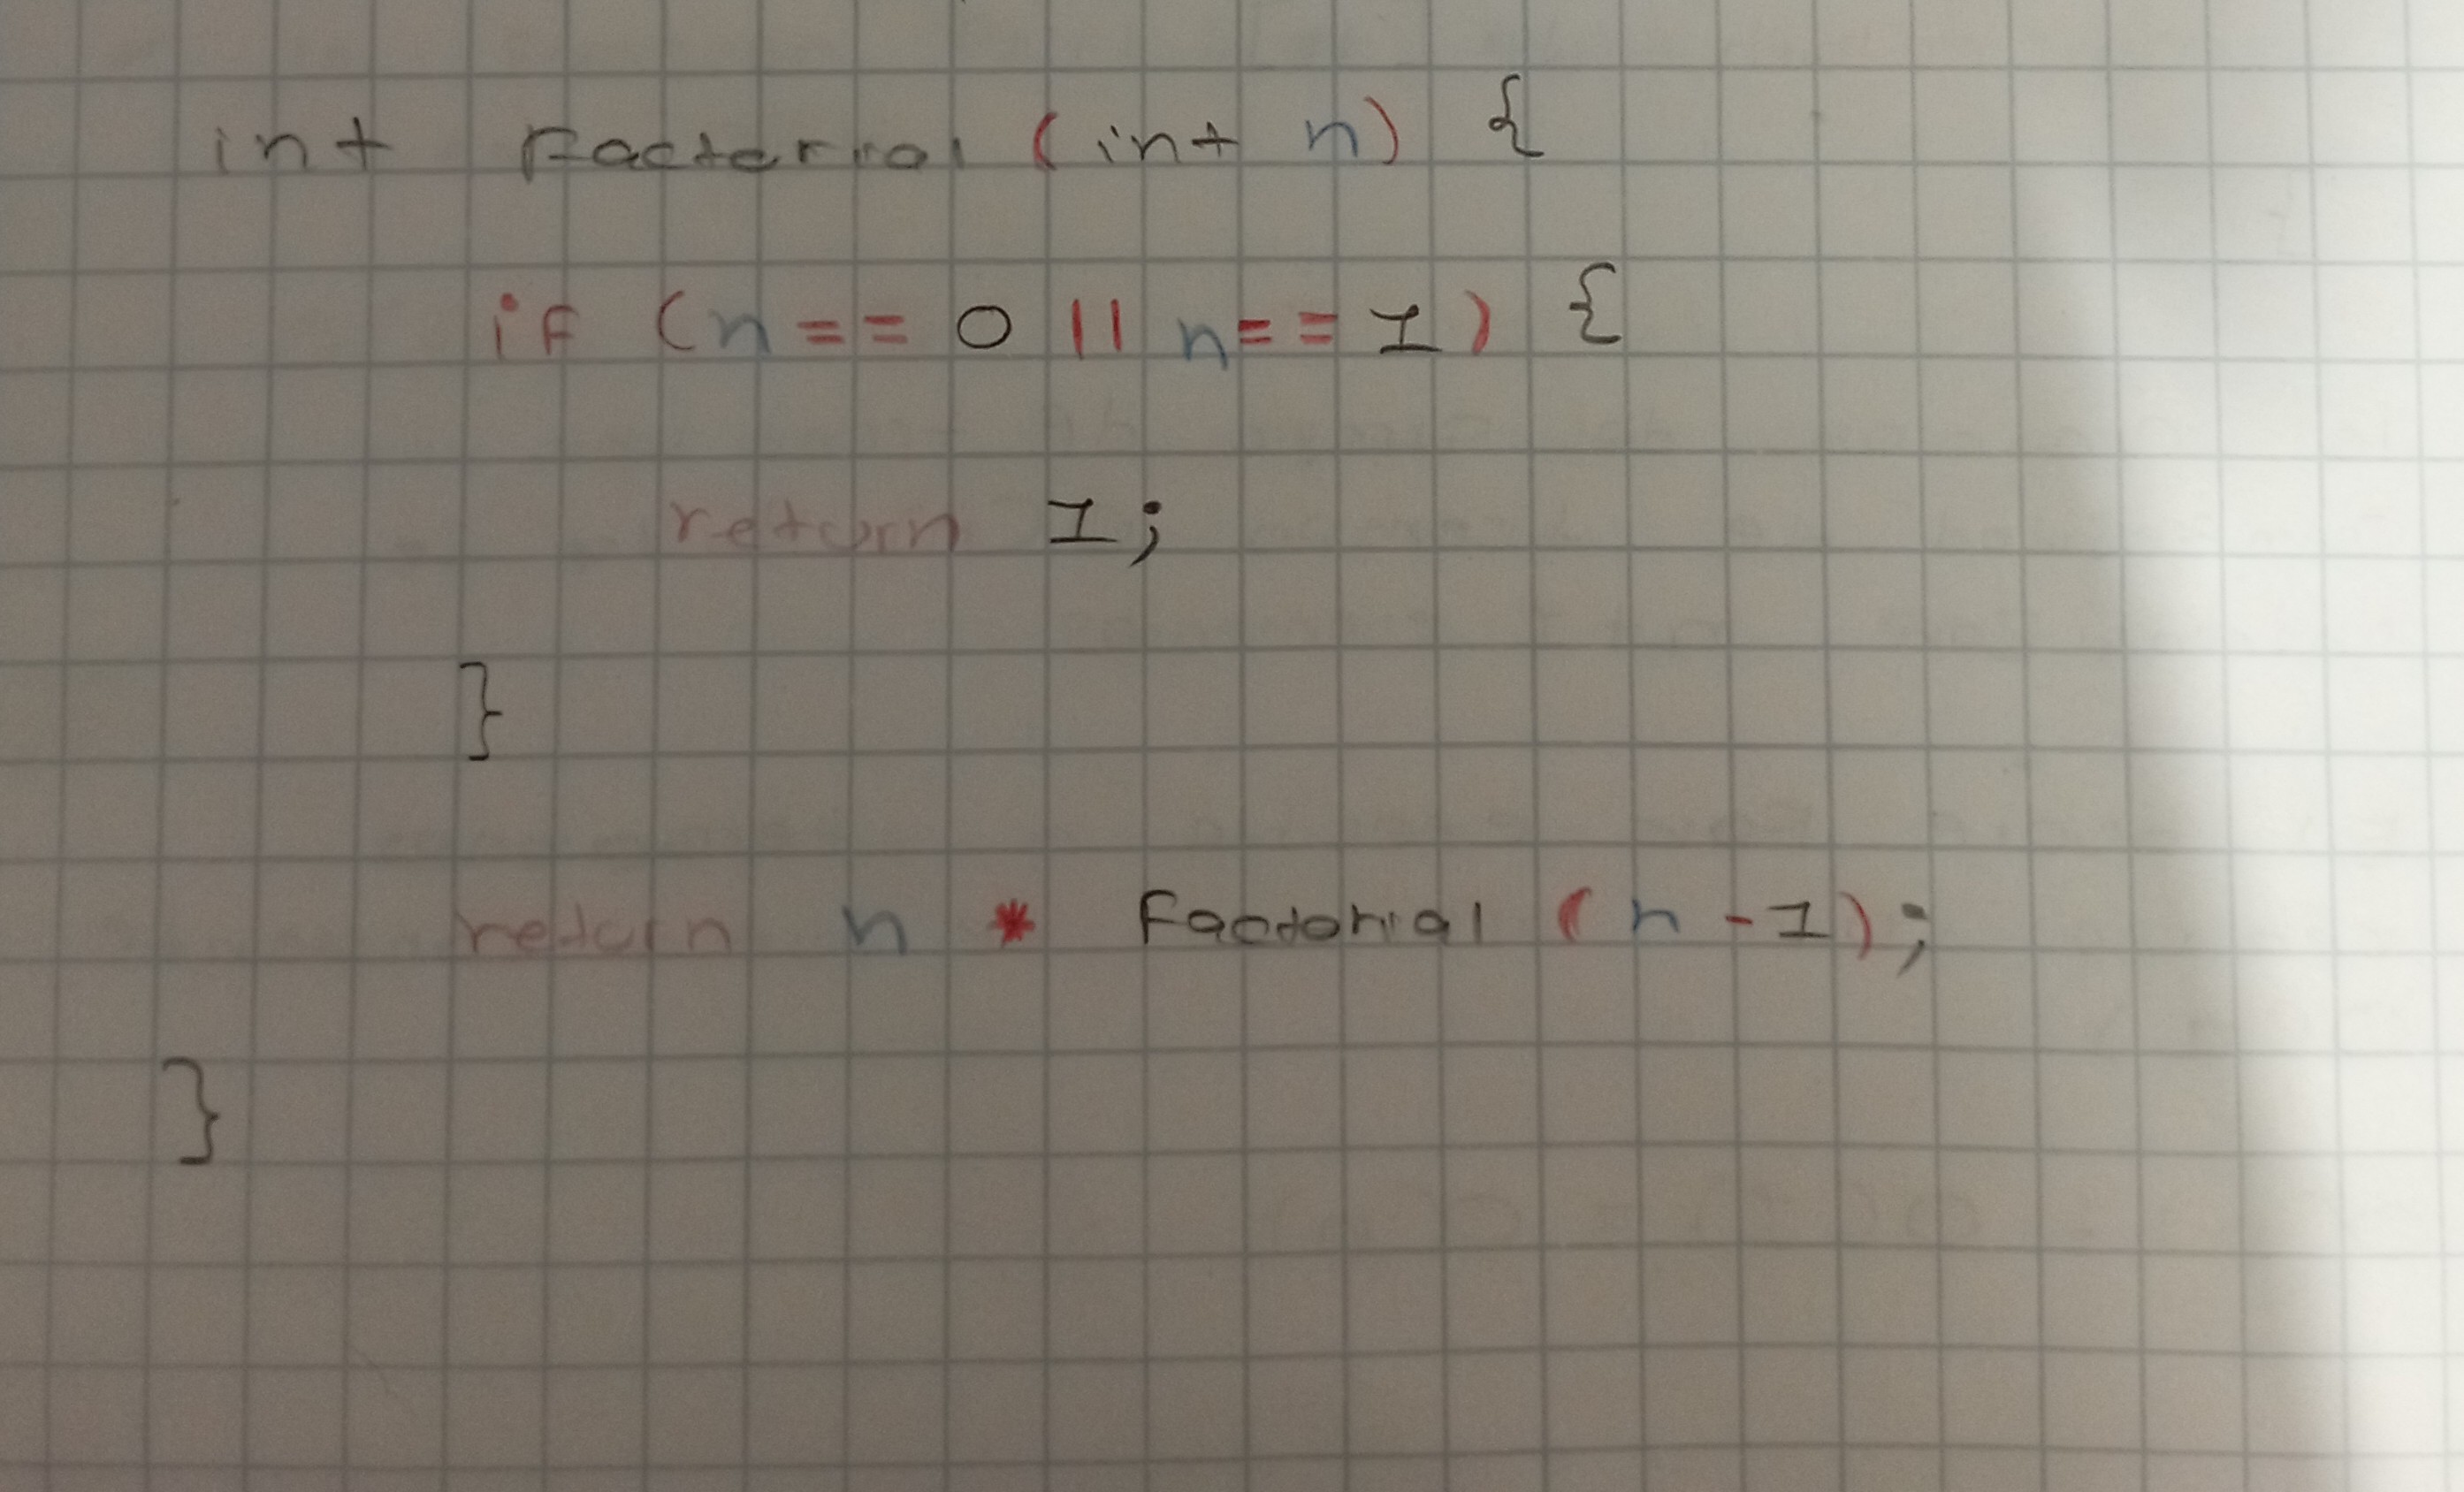 int Factorial (int n) {
if (n == 0 || n == 1) {
return 1;
}
return n * Factorial (n - 1);
}